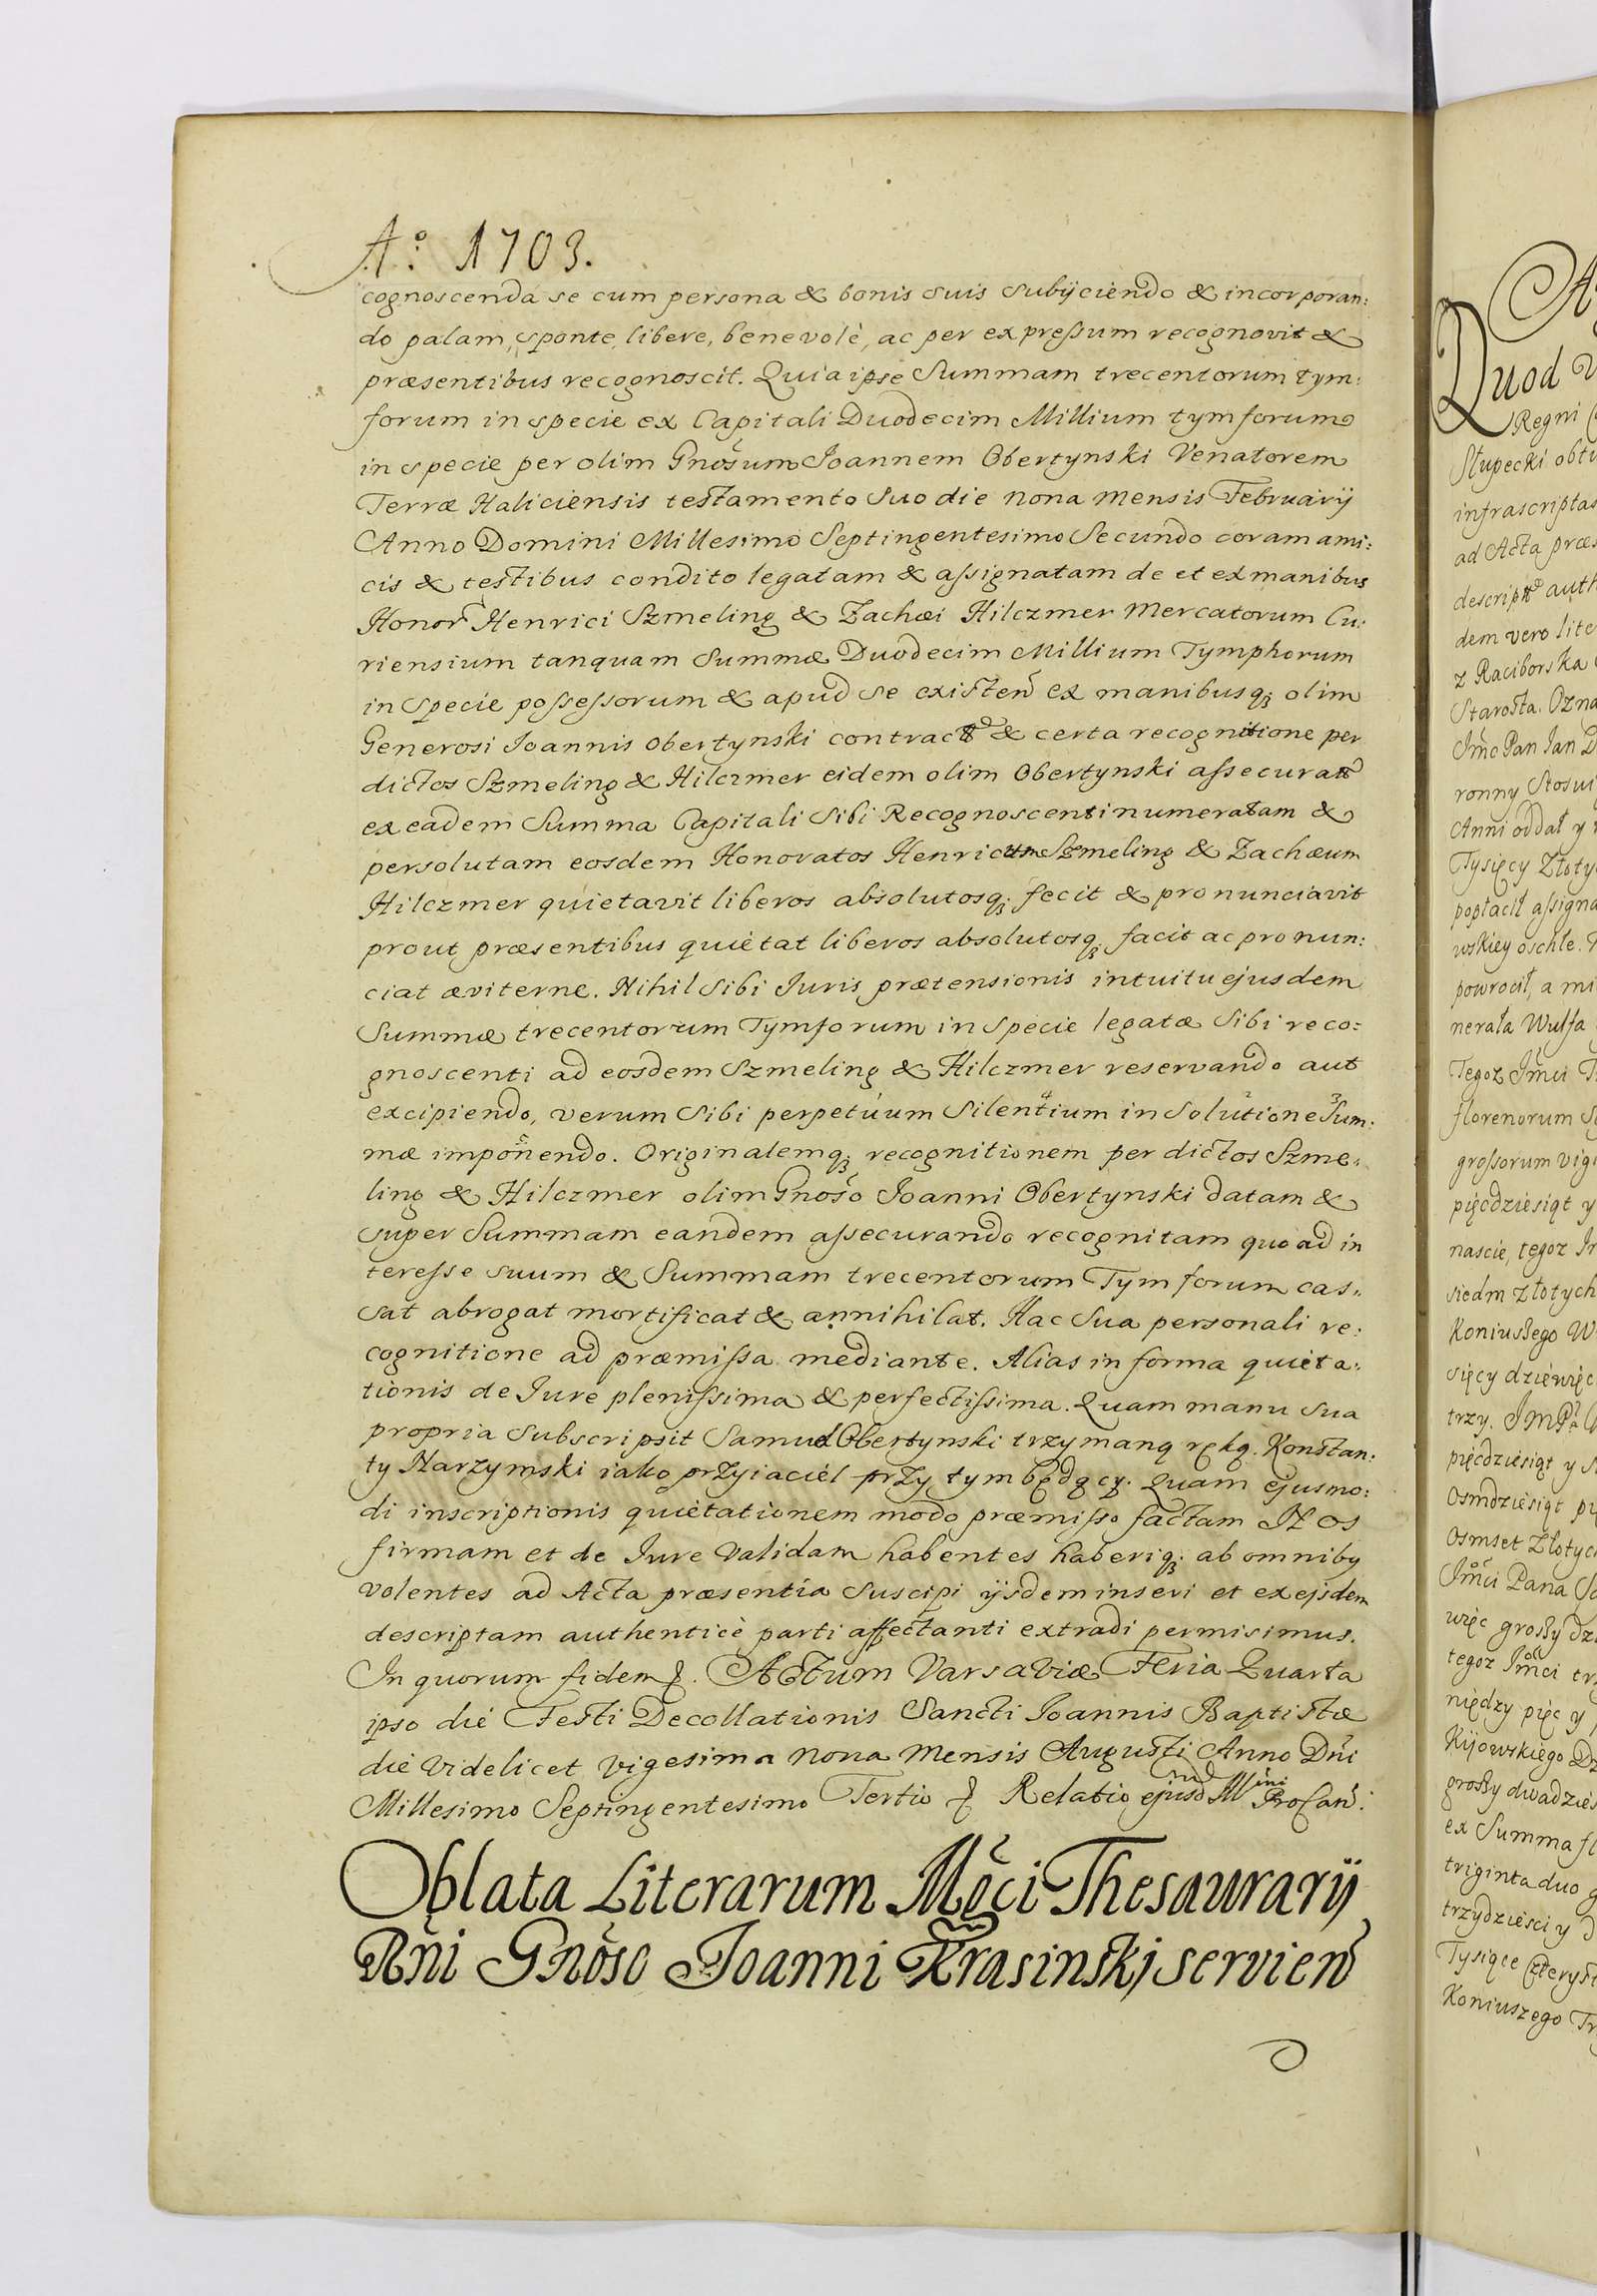 Aº: 1703.
cognoscenda se cum persona & bonis suis subijciendo & incorporan:
do palam, sponte, libere, benevolè, ac per expressum recognovit &
præsentibus recognoscit. Quia ipse Summam trecentorum tym:
forum in specie ex Capitali Duodecim Millium tymforum
in specie per olim Gnõsum Joannem Obertynski Venatorem
Terræ Haliciensis testamento suo die nona mensis Februarij
Anno Domini Millesimo Septingentesimo Secundo coram ami:
cis & testibus condito legatam & assignatam de et ex manibus
Honor Henrici Szmeling & Zachæi Hilczmer Mercatorum Cu:
riensium tanquam Summæ Duodecim Millium Tymphorum
in specie possessorum & apud se existen ex manibusq; olim
Generosi Joannis Obertynski contract & certa recognitione per
dictos Szmeling & Hilczmer eidem olim Obertynski assecurat
ex eadem Summa Capitali sibi Recognoscenti numeratam &
persolutam eosdem Honoratos Henricum Szmeling & Zachæum
Hilczmer quietavit liberos absolutosq; fecit & pronunciavit
prout præsentibus quietat liberos absolutosq; facit ac pronun:
ciat æviterne. Nihil sibi Juris prætensionis intuitu ejusdem
Summæ trecentorum Tymforum in specie legatæ sibi reco:
gnoscenti ad eosdem Szmeling & Hilczmer reservando aut
excipiendo, verum sibi perpetuum silentium in solutione Sum:
mæ imponendo. Originalemq; recognitionem per dictos Szme:
ling & Hilczmer olim Gnõso Joanni Obertynski datam &
super Summam eandem assecurando recognitam quo ad in
teresse suum & Summam trecentorum Tymforum cas:
sat abrogat mortificat & annihilat. Hac sua personali re:
cognitione ad præmissa mediante. Alias in forma quieta:
tionis de Jure plenissima & perfectissima. Quam manu sua
propria subscripsit Samuel Obertynski trzymaną ręką. Konstan:
ty Narzymski iako przyiaciel przy tym będący. Quam ejusmo:
di inscriptionis quietationem modo præmisso factam Nos
firmam et de Jure validam habentes haberiq; ab omniby
volentes ad Acta præsentia suscipi ijsdem inseri et ex ejsdem
descriptam authenticè parti affectanti extradi permisimus.
In quorum fidem &. Actum Varsaviæ Feria Quarta
ipso die Festi Decollationis Sancti Joannis Baptistæ
die videlicet vigesima nona mensis Augusti Anno Dñi
Millesimo Septingentesimo Tertio & Relatio ejusd ProCan:
Oblata Literarum Mõci Thesaurarij
Rñi Gnõso Joanni Krasinskj servien
Quod
Regni
Słupecki
infrascriptas
ad Acta
descript
dem vero
z Raciborska
Starosta. Ozna
Jmc Pan Jan
ronny
Anni oddał y
Tysięcy
popłacił assigna
powrocił, a mi
nerała Wulfa
Tegoz Jmci
florenorum
grossorum
pięcdziesiąt y
nascie, tegoz
siedm złotych
Koniuszego
sięcy dziewięc
trzy.
pięcdziesiąt y
Osmdziesiąt
Osmset złotych
Jmci Pana
więc groszy
tegoz Jmci
niędzy pięc y
Kijowskiego
groszy dwadzies
ex Summa
triginta duo
trzydziesci y
Tysiące
Koniuszego